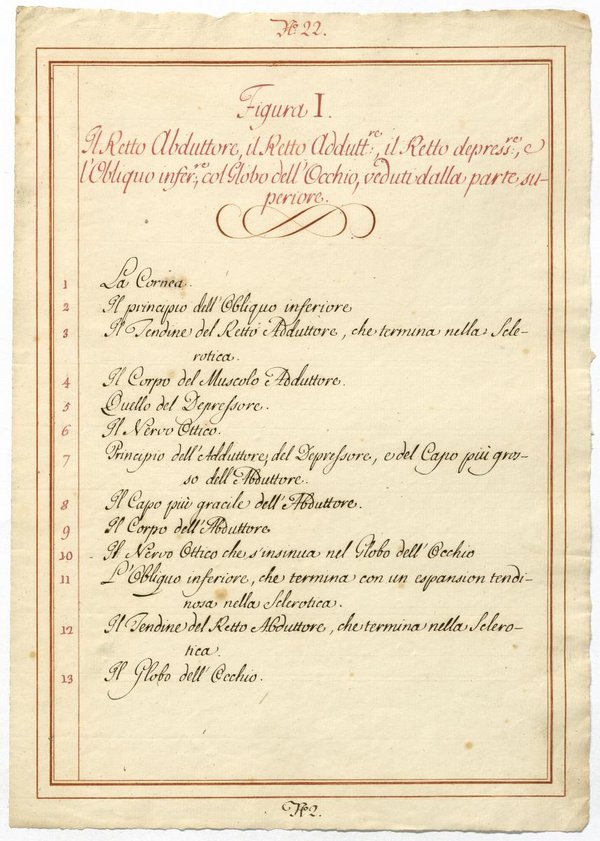 N.º 22.
Figura I.
Il Retto Abduttore, il Retto Addutt:re, il Retto depress:re, e
l'Obliquo infer:re, col Globo dell'Occhio, veduti dalla parte su-
periore.
1 La Cornea.
2 Il principio dell'Obliquo inferiore
3 Il Tendine del Retto Adduttore, che termina nella Scle-
rotica.
4 Il Corpo del Muscolo Adduttore.
5 Quello del Depressore.
6 Il Nervo Ottico.
7 Principio dell'Adduttore, del Depressore, e del Capo più gros-
so dell'Abduttore.
8 Il Capo più gracile dell'Abduttore.
9 Il Corpo dell'Abduttore
10 Il Nervo Ottico che s'insinua nel Globo dell'Occhio
11 L'Obliquo inferiore, che termina con un espansion tendi-
nosa nella Sclerotica.
12 Il Tendine del Retto Abduttore, che termina nella Sclero-
tica.
13 Il Globo dell'Occhio.